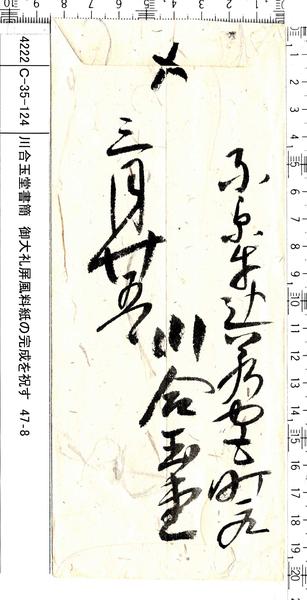 〆
東京牛込若宮町
川合玉堂
三月廿五
4222 C-35-124 川合玉堂書簡 御大礼屏風料紙の完成を祝す 47-8